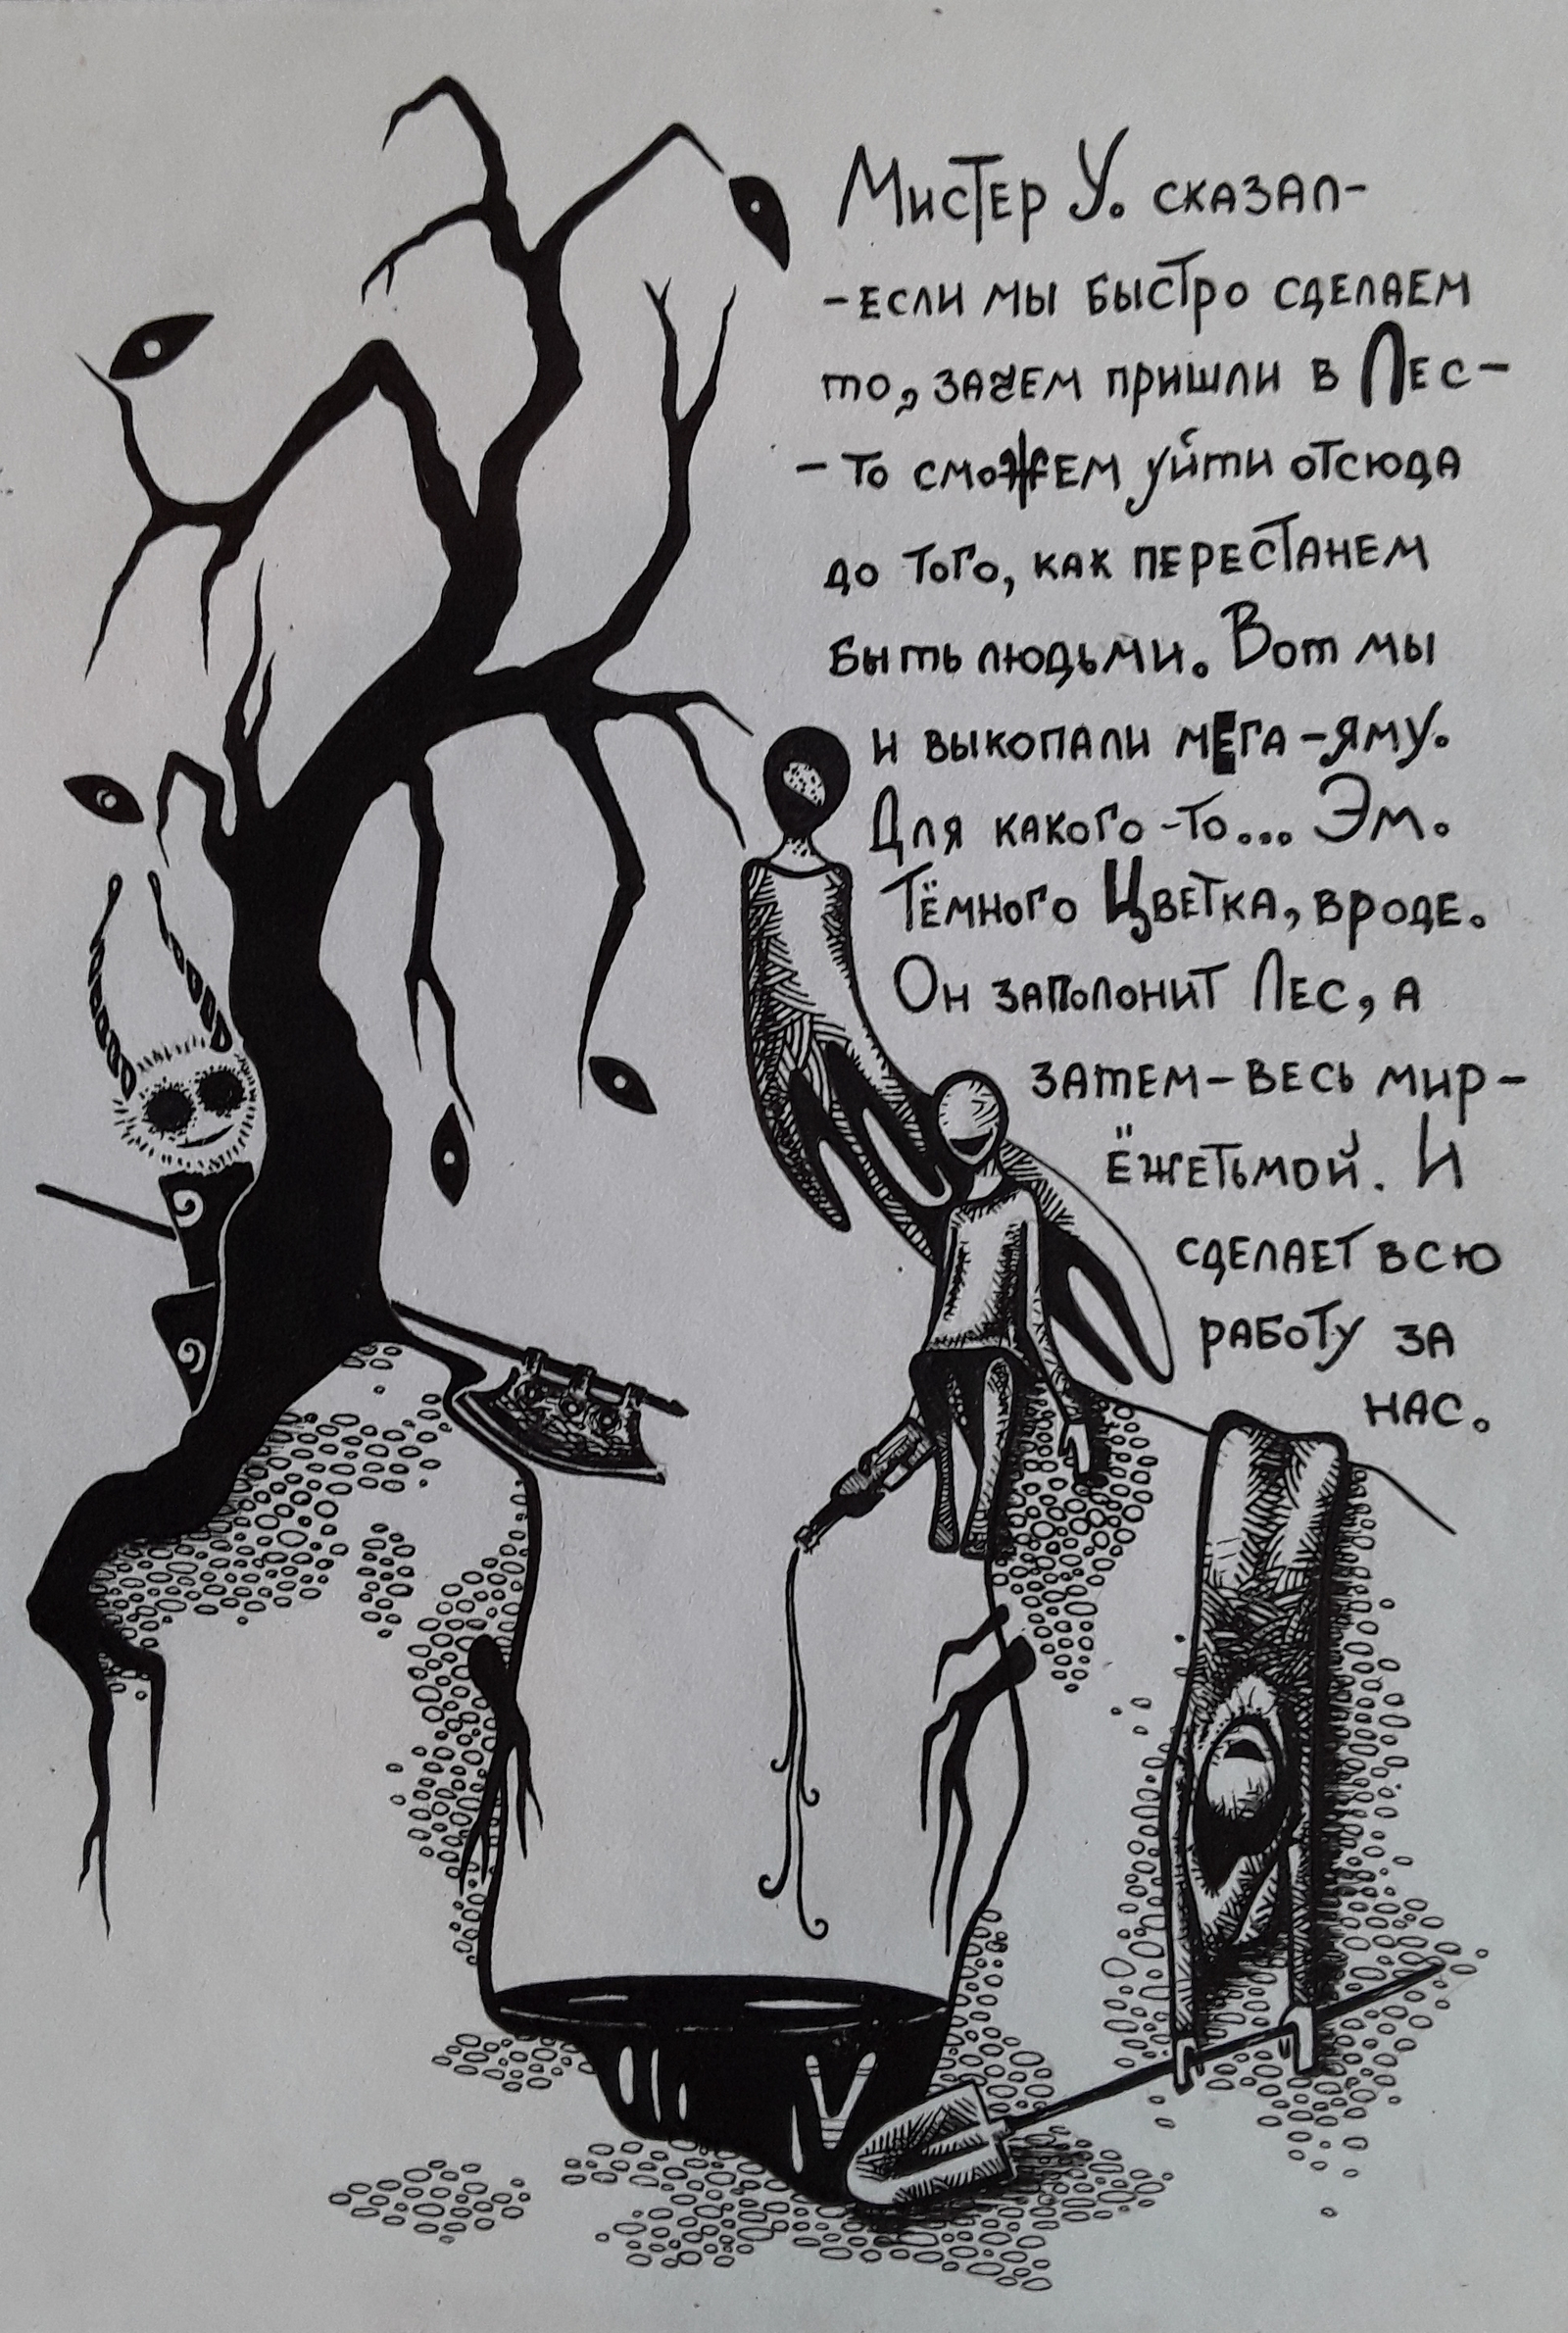 Мистер У. сказал-
-если мы быстро сделаем
то, зачем пришли в Лес-
-то сможем уйти отсюда
до того, как перестанем
быть людьми. Вот мы
и выкопали мега-яму.
Для какого-то... Эм.
Тёмного Цветка, вроде.
Он заполонит Лес, а
затем-весь мир-
ёжетьмой. И
сделает всю
работу за
нас.